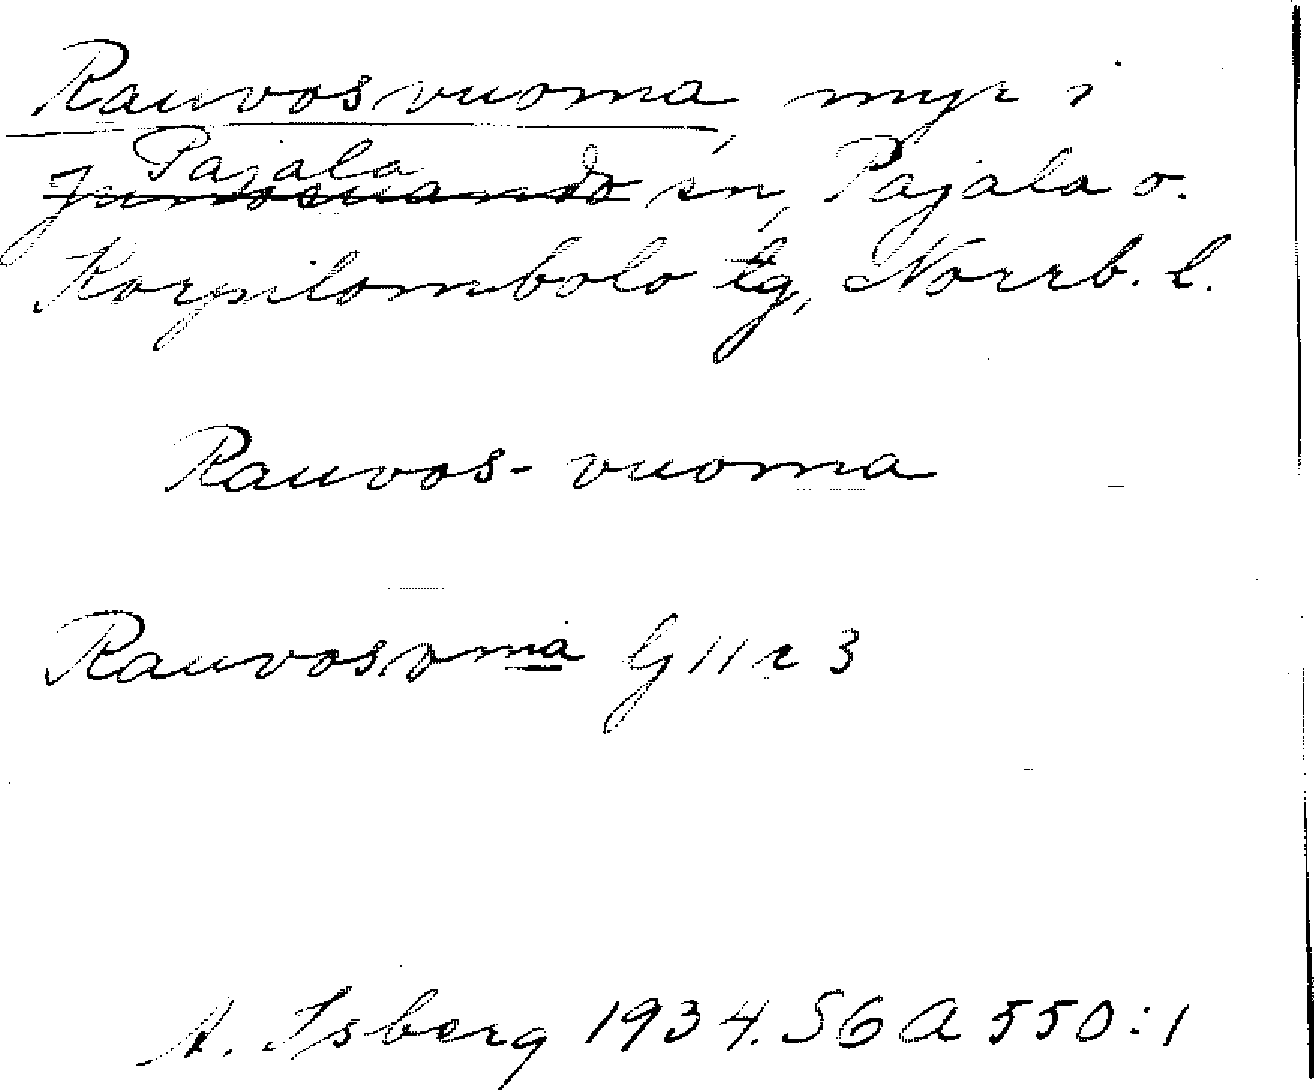 Rauvosvuoma, myr i
Pajala
Junosuando sn, Pajala o.
Korpilombolo tg, Norrb. l.
Rauvos-vuoma
Rauvosoma G 11 r 3
A. Isberg 1934. SGA 550:1